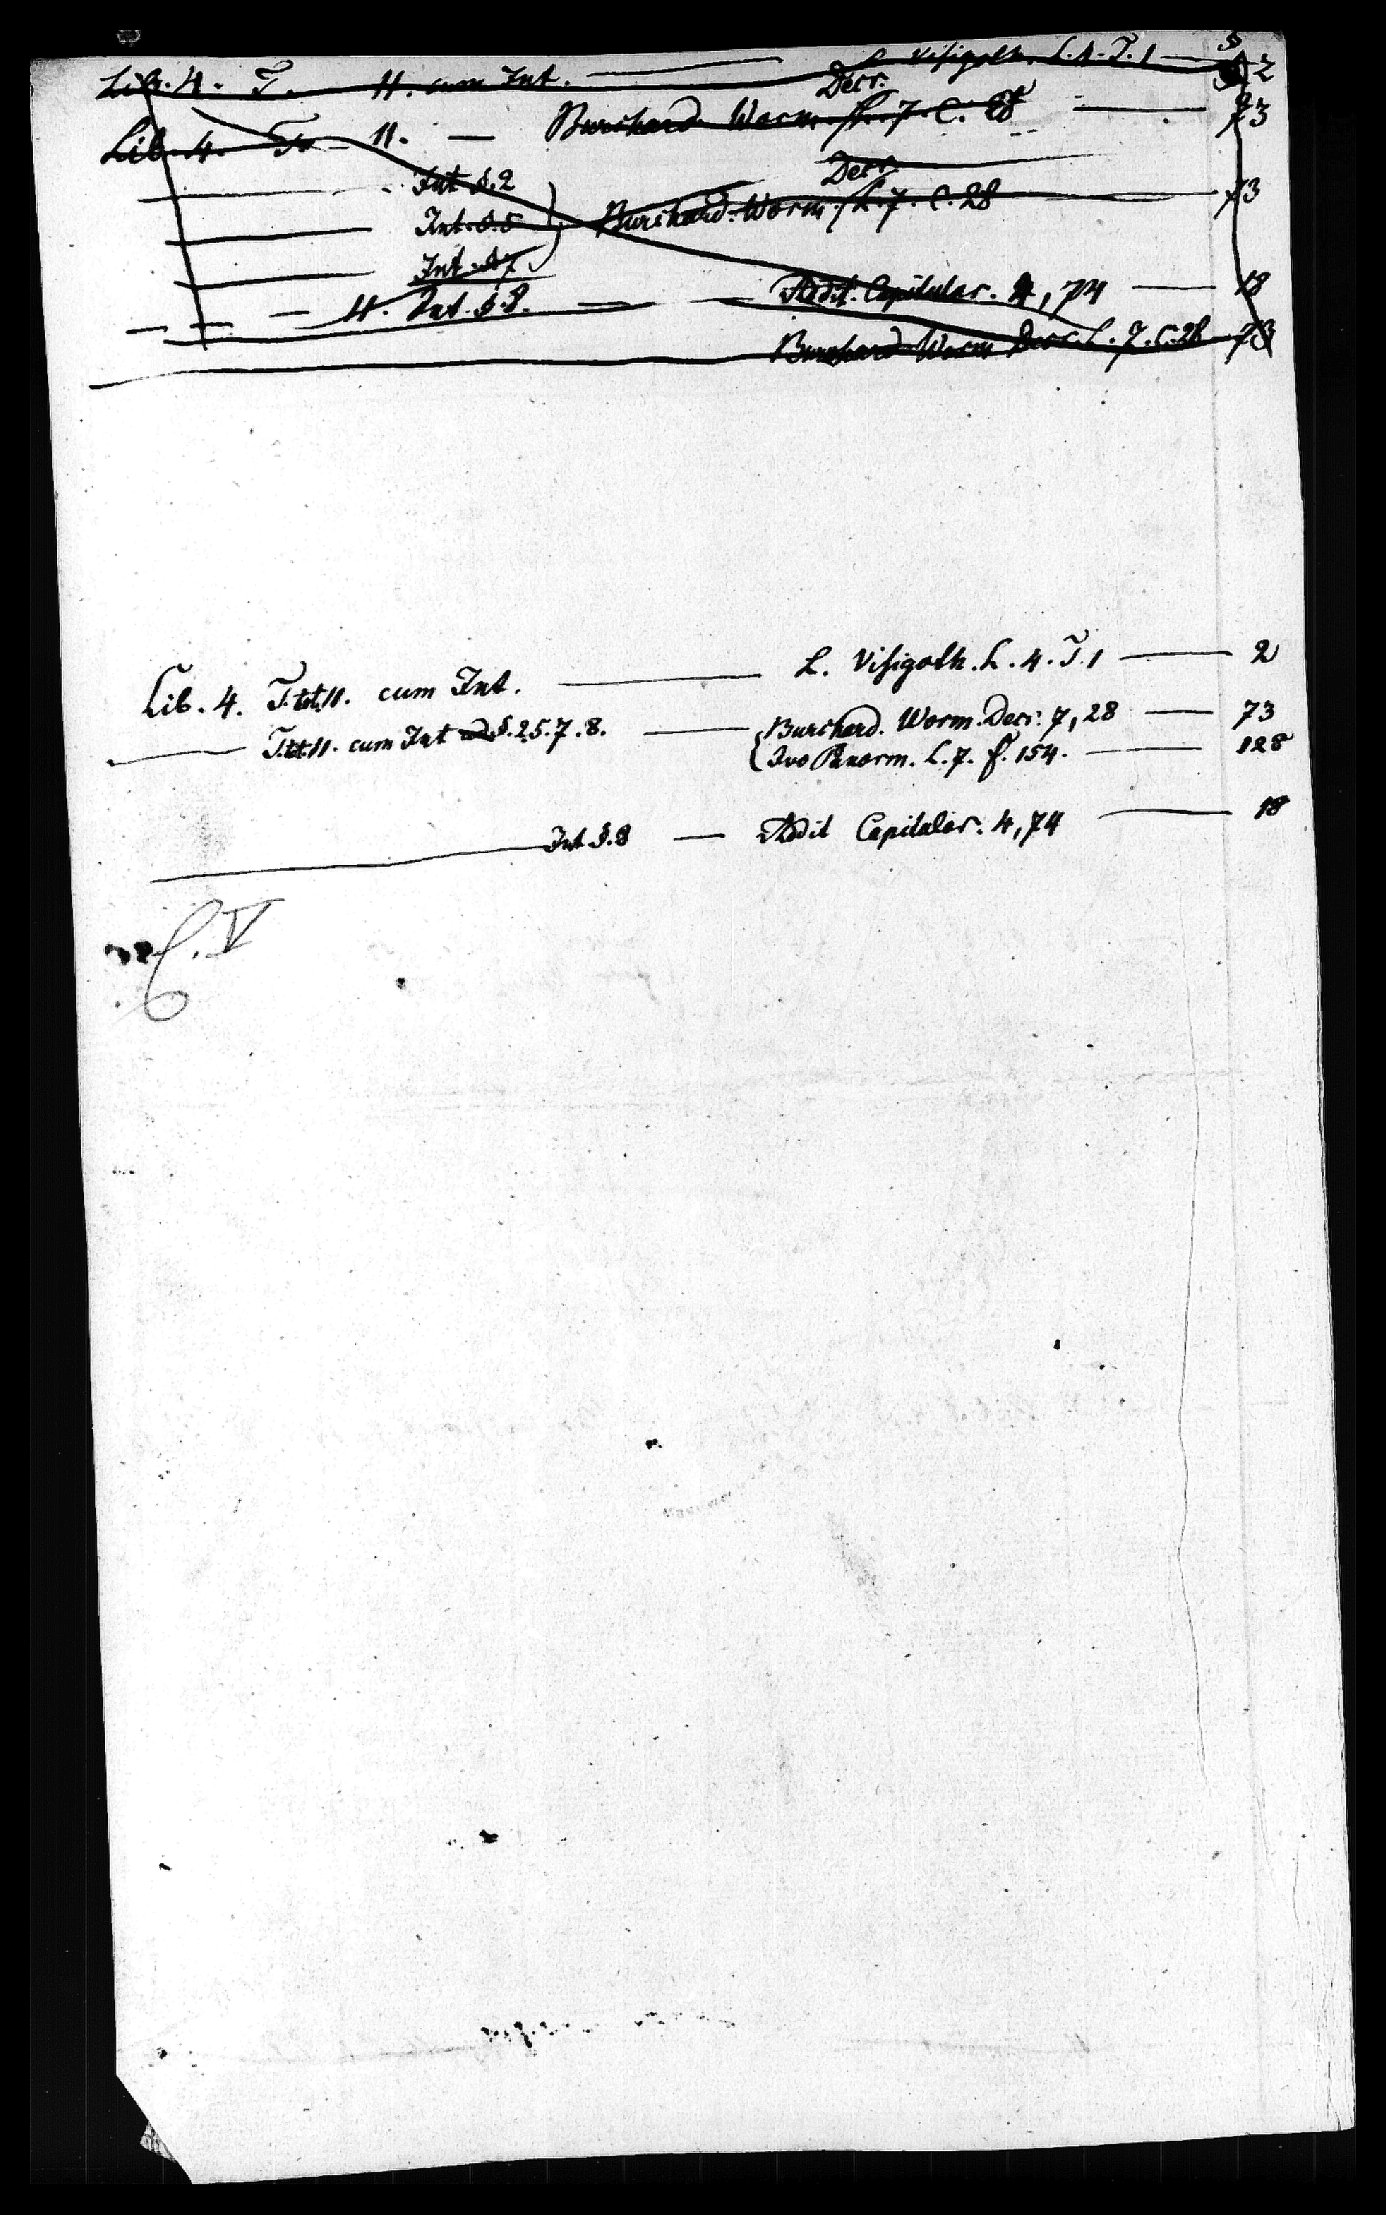 Lib. 4. T. 11. cum Int. — L. Visigoth. L. 4. T. 1 — 2
Decr.
Lib. 4. T. 11. — Burchard. Worm. L. 7. C. 28 — 73
Decr.
— Int. §. 2
— Int. §. 5 Burchard. Worm. L. 7. C. 28 — 73
— Int. §. 7
— — — 11. Int. §. 8. — — Addit. Capitular. 4, 74 — 18
Burchard Worm Decr. L. 7. C. 28 73
Lib. 4. T. tit. 11. cum Int. — L. Visigoth. L. 4. T. 1 — 2
— T. tit. 11. cum Int §. 2.5.7.8. — Burchard. Worm. Decr. 7, 28 — 73
Ivo Panorm. L. 7. f. 154. — 128
— Int §. 8 — Addit Capitular. 4, 74 — 18
C. V